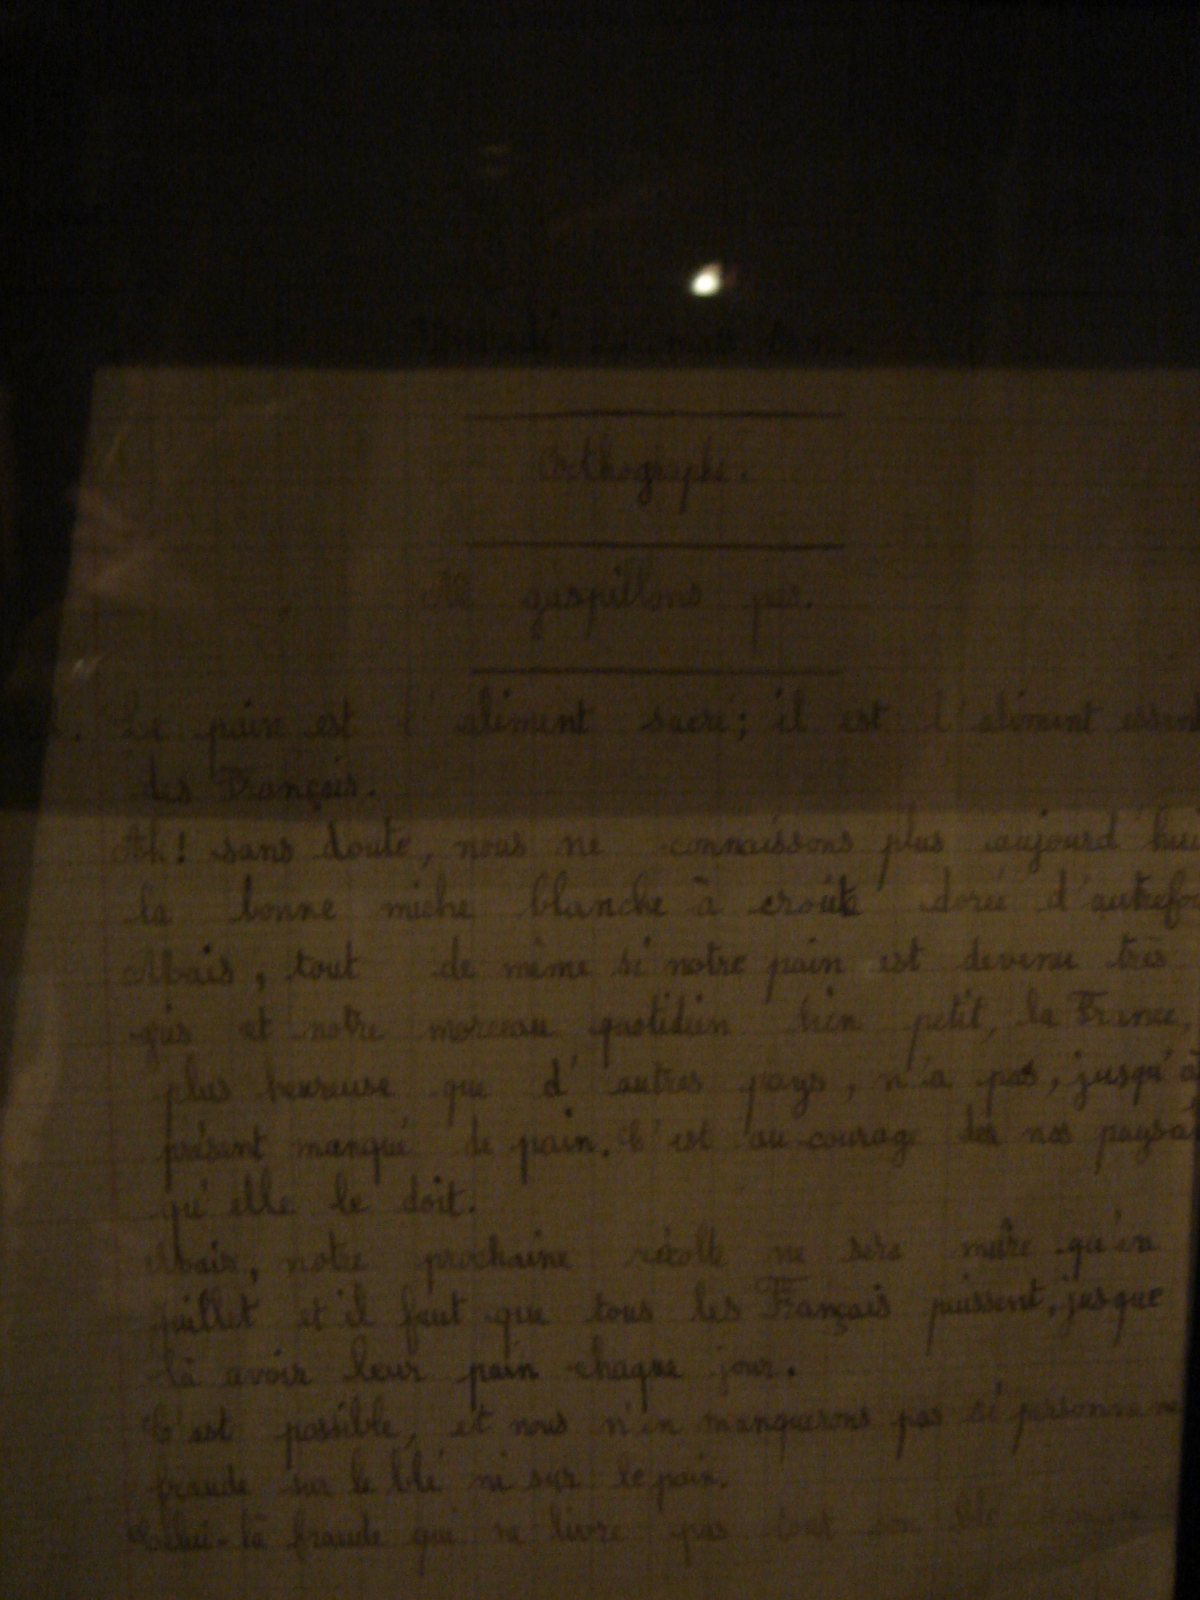 Orthographe.
Ne gaspillons pas.
Le pain est l'aliment sacré; il est l'aliment essen
des Français.
Ah! sans doute, nous ne connaissons plus aujourd'hui
la bonne miche blanche à croûte dorée d'autrefo
Mais, tout de même si notre pain est devenu très
gris et notre morceau quotidien bien petit, la France,
plus heureuse que d'autres pays, n'a pas, jusqu'à
présent manqué de pain. C'est au courage des nos paysa
qu'elle le doit.
Mais, notre prochaine récolte ne sera mûre qu'en
juillet et il faut que tous les Français puissent, jusque
-là avoir leur pain chaque jour.
C'est possible, et nous n'en manquerons pas si personne ne
fraude sur le blé ni sur le pain.
Celui-là fraude qui ne livre pas tout son blé